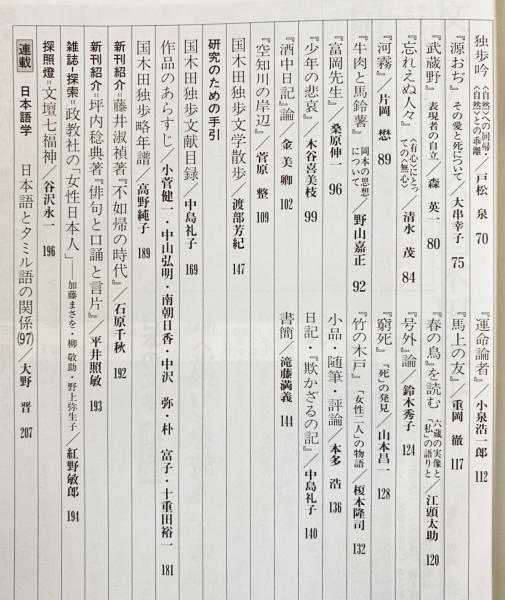 独歩吟 〈自然〉への回帰・〈自然〉との乖離／戸松 泉 70
『源おぢ』 その愛と死について／大串幸子 75
『武蔵野』 表現者の自立／森 英一 80
『忘れえぬ人々』 〈有心〉にとっての〈無心〉／清水 茂 84
『河霧』／片岡 懋 89
『牛肉と馬鈴薯』 岡本の思想について／野山嘉正 92
『富岡先生』／桑原伸一 96
『少年の悲哀』／木谷喜美枝 99
『酒中日記』論／金 美卿 102
『空知川の岸辺』／菅原 整 109
『運命論者』／小泉浩一郎 112
『馬上の友』／重岡 徹 117
『春の鳥』を読む 六蔵の実像と「私」の語りと／江頭太助 120
『号外』論／鈴木秀子 124
『窮死』 「死」の発見／山本昌一 128
『竹の木戸』 「女性二人」の物語／榎本隆司 132
小品・随筆・評論／本多 浩 136
日記・『欺かざるの記』／中島礼子 140
書簡／滝藤満義 144
国木田独歩文学散歩／渡部芳紀 147
研究のための手引
国木田独歩文献目録／中島礼子 169
作品のあらすじ／小菅健一・中山弘明・南朝日香・中沢 弥・朴 富子・十重田裕一 181
国木田独歩略年譜／高野純子 189
新刊紹介＝藤井淑禎著『不如帰の時代』／石原千秋 192
新刊紹介＝坪内稔典著『俳句と口誦と言片』／平井照敏 193
雑誌-探索＝政教社の「女性日本人」──加藤まさを・柳 敬助・野上弥生子／紅野敏郎 194
探照燈＝文壇七福神／谷沢永一 196
連載 日本語学 日本語とタミル語の関係(97)／大野 晋 207